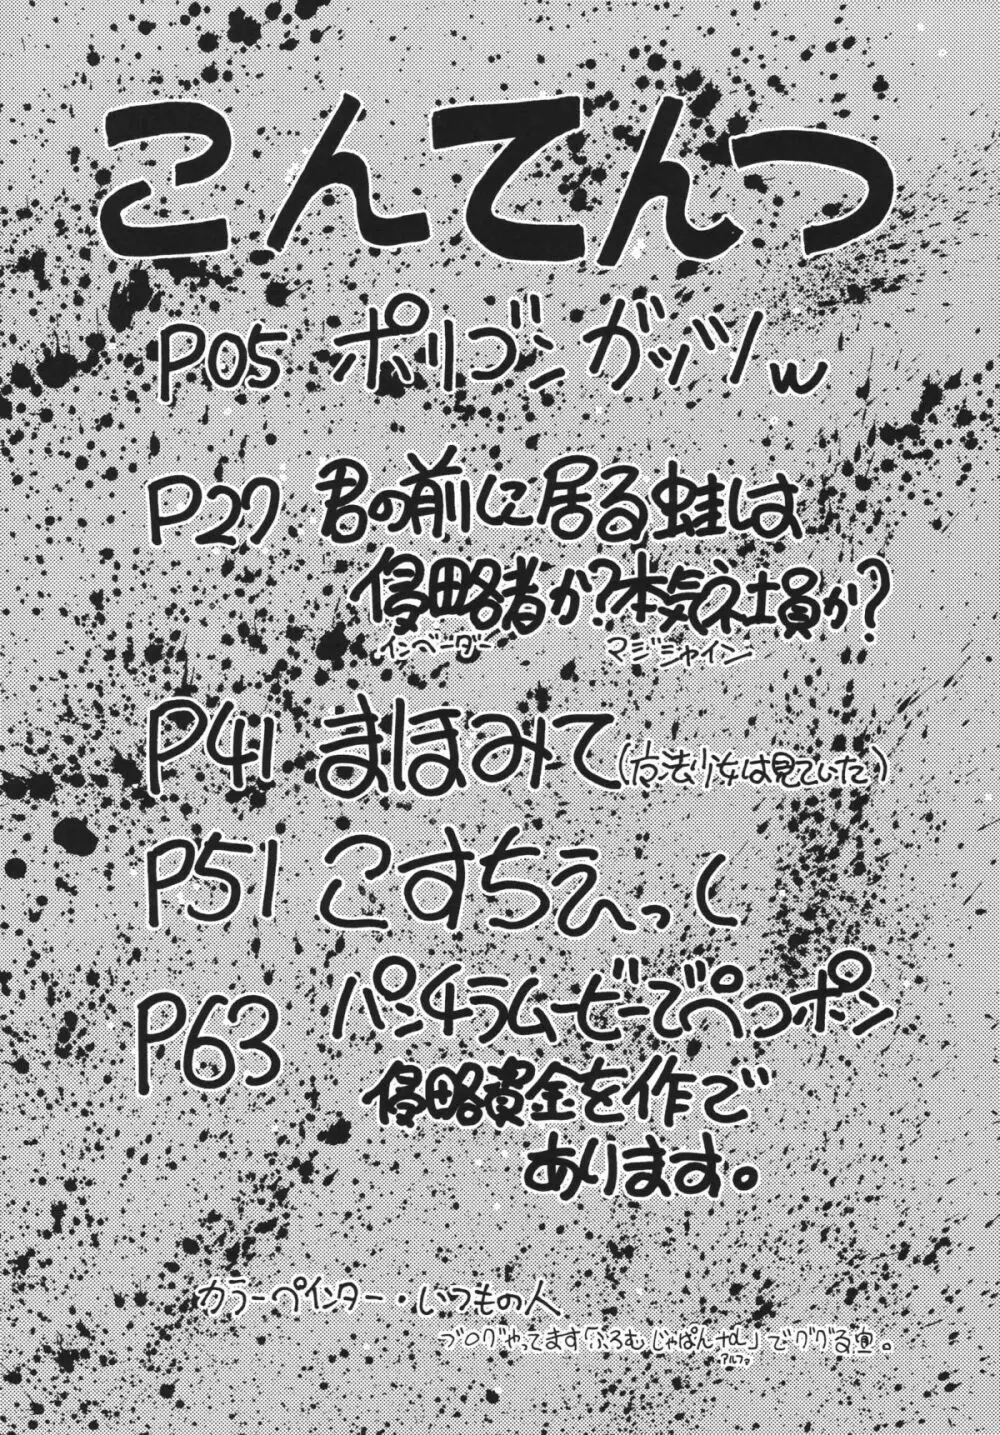 こんてんつ
P05 ポリゴンガッツw
P27 君の前に居る蛙は
侵略者か?本気社員か?
インベーダー マジシャイン
P41 まほみて(方法少女は見ていた)
P51 こすちぇっく
P63 パンチラムービーでぺっポン
侵略資金を作で
あります。
カラーペインター・いつもの人
ブログやってます「ぶろむじゃぱんα」でググる宜。
アルファ